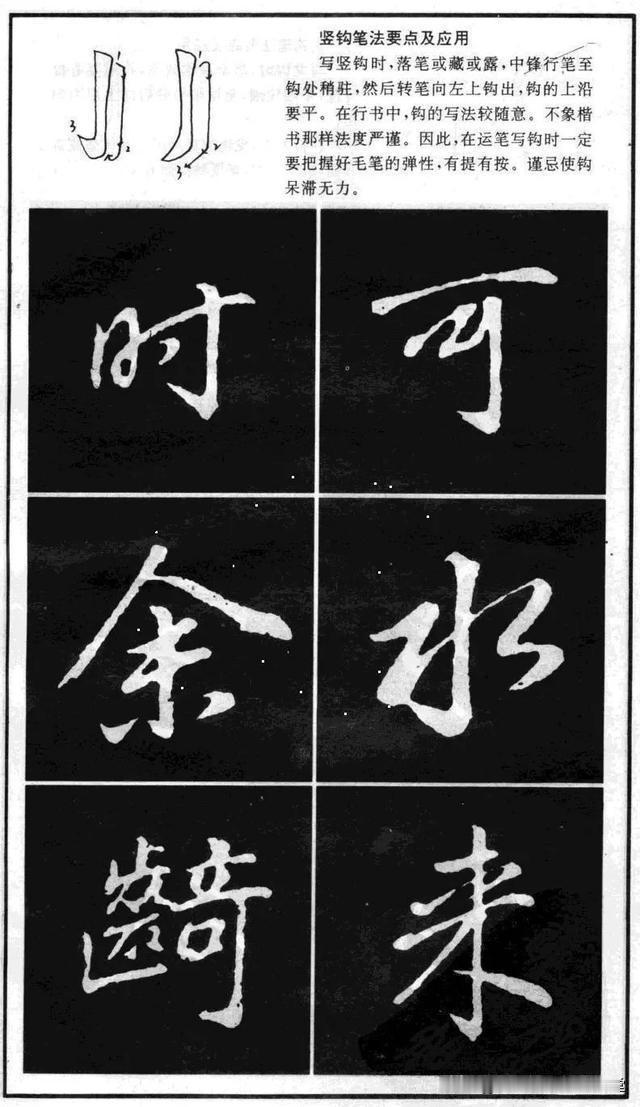 竖钩笔法要点及应用
写竖钩时，落笔或藏或露，中锋行笔至
钩处稍驻，然后转笔向左上钩出，钩的上沿
要平。在行书中，钩的写法较随意。不象楷
书那样法度严谨。因此，在运笔写钩时一定
要把握好毛笔的弹性，有提有按。谨忌使钩
呆滞无力。
1
2
3
1
2
3
可
时
水
余
来
齮